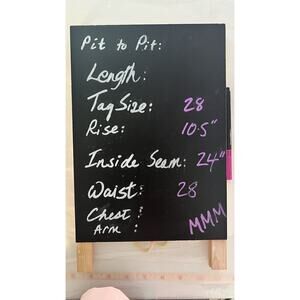 Pit to Pit:
Length:
Tag Size: 28
Rise: 10.5"
Inside Seam: 24"
Waist: 28
Chest :
Arm : MMM